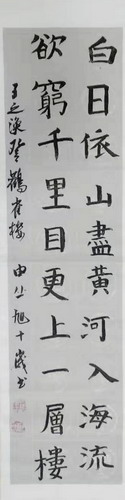 白日依山盡黃河入海流
欲窮千里目更上一層樓
王之渙登鸛雀樓 由丛旭十歲书